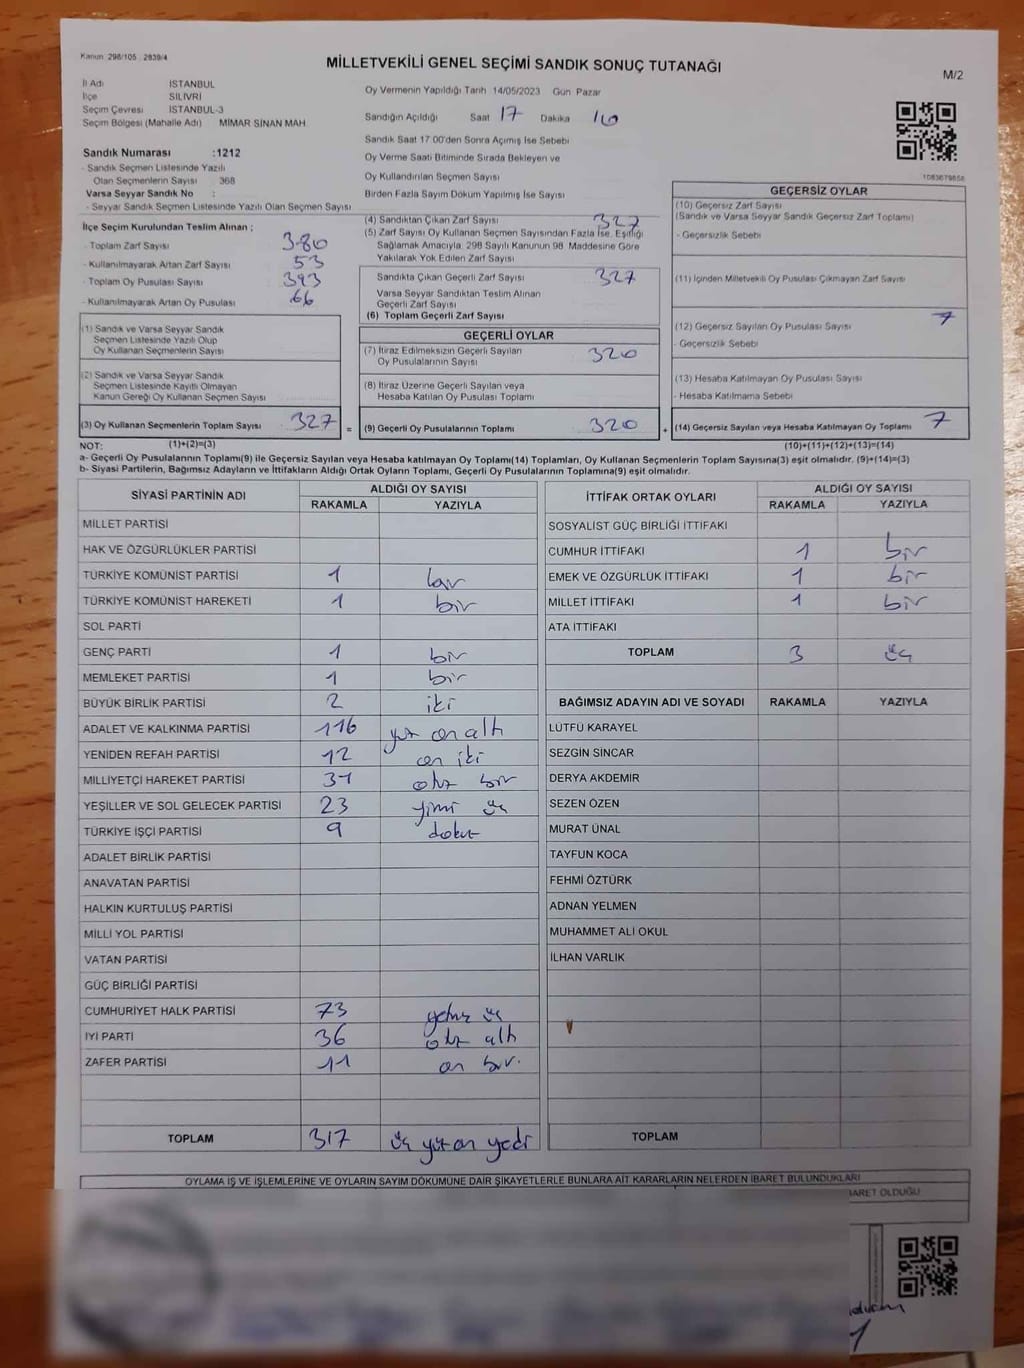 Kanun 298/105 . 2839/4
MİLLETVEKİLİ GENEL SEÇİMİ SANDIK SONUÇ TUTANAĞI
M/2
İl Adı İSTANBUL
İlçe SİLİVRİ
Seçim Çevresi İSTANBUL-3
Seçim Bölgesi (Mahalle Adı) MİMAR SİNAN MAH.
Oy Vermenin Yapıldığı Tarih 14/05/2023 Gün Pazar
Sandığın Açıldığı Saat 17 Dakika 10
Sandık Saat 17.00'den Sonra Açımış İse Sebebi
Oy Verme Saati Bitiminde Sırada Bekleyen ve
Oy Kullandırılan Seçmen Sayısı
Birden Fazla Sayım Döküm Yapılmış İse Sayısı
Sandık Numarası :1212
- Sandık Seçmen Listesinde Yazılı
Olan Seçmenlerin Sayısı : 368
Varsa Seyyar Sandık No :
- Seyyar Sandık Seçmen Listesinde Yazılı Olan Seçmen Sayısı
İlçe Seçim Kurulundan Teslim Alınan ;
- Toplam Zarf Sayısı 380
- Kullanılmayarak Artan Zarf Sayısı 53
- Toplam Oy Pusulası Sayısı 393
- Kullanılmayarak Artan Oy Pusulası 66
(1) Sandık ve Varsa Seyyar Sandık
Seçmen Listesinde Yazılı Olup
Oy Kullanan Seçmenlerin Sayısı
(2) Sandık ve Varsa Seyyar Sandık
Seçmen Listesinde Kayıtlı Olmayan
Kanun Gereği Oy Kullanan Seçmen Sayısı
(3) Oy Kullanan Seçmenlerin Toplam Sayısı 327
(4) Sandıktan Çıkan Zarf Sayısı 327
(5) Zarf Sayısı Oy Kullanan Seçmen Sayısından Fazla İse, Eşitliği
Sağlamak Amacıyla, 298 Sayılı Kanunun 98. Maddesine Göre
Yakılarak Yok Edilen Zarf Sayısı
Sandıkta Çıkan Geçerli Zarf Sayısı 327
Varsa Seyyar Sandıktan Teslim Alınan
Geçerli Zarf Sayısı
(6) Toplam Geçerli Zarf Sayısı
GEÇERLİ OYLAR
(7) İtiraz Edilmeksizin Geçerli Sayılan
Oy Pusulalarının Sayısı 320
(8) İtiraz Üzerine Geçerli Sayılan veya
Hesaba Katılan Oy Pusulası Toplamı
= (9) Geçerli Oy Pusulalarının Toplamı 320
1083679858
GEÇERSİZ OYLAR
(10) Geçersiz Zarf Sayısı
(Sandık ve Varsa Seyyar Sandık Geçersiz Zarf Toplamı)
- Geçersizlik Sebebi
(11) İçinden Milletvekili Oy Pusulası Çıkmayan Zarf Sayısı
(12) Geçersiz Sayılan Oy Pusulası Sayısı 7
- Geçersizlik Sebebi
(13) Hesaba Katılmayan Oy Pusulası Sayısı
- Hesaba Katılmama Sebebi
+ (14) Geçersiz Sayılan veya Hesaba Katılmayan Oy Toplamı 7
NOT: (1)+(2)=(3) (10)+(11)+(12)+(13)=(14)
a- Geçerli Oy Pusulasının Toplamı(9) ile Geçersiz Sayılan veya Hesaba katılmayan Oy Toplamı(14) Toplamları, Oy Kullanan Seçmenlerin Toplam Sayısına(3) eşit olmalıdır. (9)+(14)=(3)
b- Siyasi Partilerin, Bağımsız Adayların ve İttifakların Aldığı Ortak Oyların Toplamı, Geçerli Oy Pusulalarının Toplamına(9) eşit olmalıdır.
SİYASİ PARTİNİN ADI ALDIĞI OY SAYISI
RAKAMLA YAZIYLA
MİLLET PARTİSİ
HAK VE ÖZGÜRLÜKLER PARTİSİ
TÜRKİYE KOMÜNİST PARTİSİ 1 bir
TÜRKİYE KOMÜNİST HAREKETİ 1 bir
SOL PARTİ
GENÇ PARTİ 1 bir
MEMLEKET PARTİSİ 1 bir
BÜYÜK BİRLİK PARTİSİ 2 iki
ADALET VE KALKINMA PARTİSİ 116 yüz on altı
YENİDEN REFAH PARTİSİ 12 on iki
MİLLİYETÇİ HAREKET PARTİSİ 31 otuz bir
YEŞİLLER VE SOL GELECEK PARTİSİ 23 yirmi üç
TÜRKİYE İŞÇİ PARTİSİ 9 dokuz
ADALET BİRLİK PARTİSİ
ANAVATAN PARTİSİ
HALKIN KURTULUŞ PARTİSİ
MİLLİ YOL PARTİSİ
VATAN PARTİSİ
GÜÇ BİRLİĞİ PARTİSİ
CUMHURİYET HALK PARTİSİ 73 yetmiş üç
İYİ PARTİ 36 otuz altı
ZAFER PARTİSİ 11 on bir.
TOPLAM 317 üç yüz on yedi
İTTİFAK ORTAK OYLARI ALDIĞI OY SAYISI
RAKAMLA YAZIYLA
SOSYALİST GÜÇ BİRLİĞİ İTTİFAKI
CUMHUR İTTİFAKI 1 bir
EMEK VE ÖZGÜRLÜK İTTİFAKI 1 bir
MİLLET İTTİFAKI 1 bir
ATA İTTİFAKI
TOPLAM 3 üç
BAĞIMSIZ ADAYIN ADI VE SOYADI RAKAMLA YAZIYLA
LÜTFÜ KARAYEL
SEZGİN SİNCAR
DERYA AKDEMİR
SEZEN ÖZEN
MURAT ÜNAL
TAYFUN KOCA
FEHMİ ÖZTÜRK
ADNAN YELMEN
MUHAMMET ALİ OKUL
İLHAN VARLIK
TOPLAM
OYLAMA İŞ VE İŞLEMLERİNE VE OYLARIN SAYIM DÖKÜMÜNE DAİR ŞİKAYETLERLE BUNLARA AİT KARARLARIN NELERDEN İBARET BULUNDUKLARI
BARET OLDUĞU